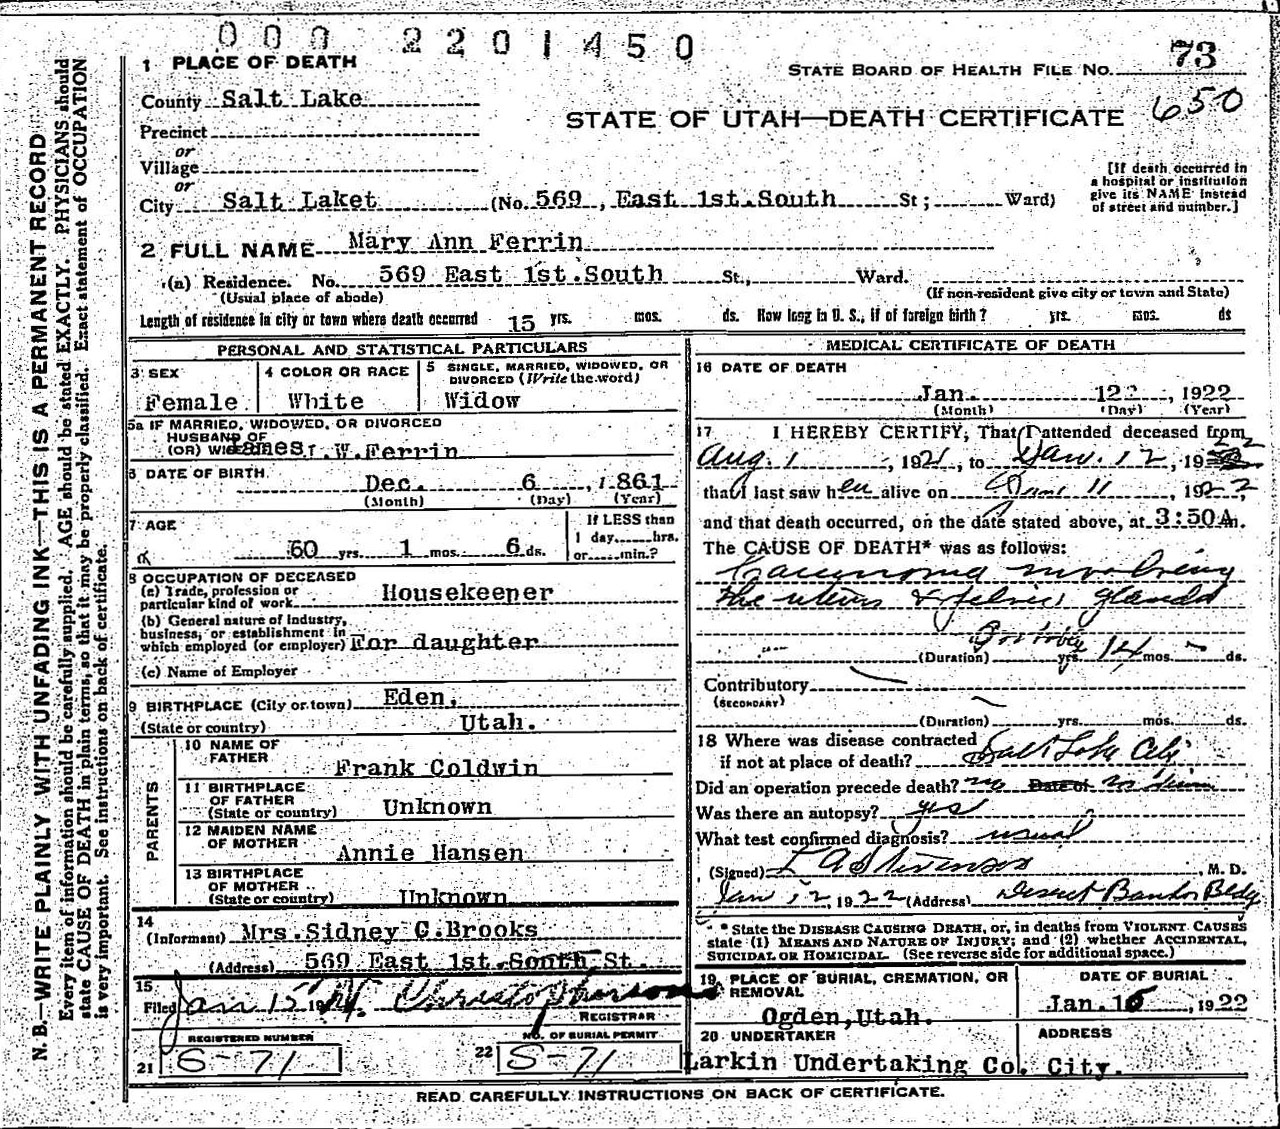 000 2201450
1 PLACE OF DEATH
STATE BOARD OF HEALTH FILE NO. 73
650
County Salt Lake
STATE OF UTAH—DEATH CERTIFICATE
Precinct
or
Village
or
City Salt Laket (No. 569 , East 1st.South St; Ward)
[If death occurred in
a hospital or institution
give its NAME instead
of street and number.]
2 FULL NAME Mary Ann Ferrin
(a) Residence. No. 569 East 1st.South St., Ward.
(Usual place of abode) (If non-resident give city or town and State)
Length of residence in city or town where death occurred 15 yrs. mos. ds. How long in U. S., if of foreign birth? yrs. mos. ds
PERSONAL AND STATISTICAL PARTICULARS
3 SEX
Female
4 COLOR OR RACE
White
5 SINGLE, MARRIED, WIDOWED, OR
DIVORCED (Write the word)
Widow
5a IF MARRIED, WIDOWED, OR DIVORCED
HUSBAND OF
(OR) WIFE James .W.Ferrin
6 DATE OF BIRTH
Dec. 6 , 1861
(Month) (Day) (Year)
7 AGE
60 yrs. 1 mos. 6 ds.
If LESS than
1 day hrs.
or min.?
8 OCCUPATION OF DECEASED
(a) Trade, profession or
particular kind of work Housekeeper
(b) General nature of Industry,
business, or establishment in
which employed (or employer) For daughter
(c) Name of Employer
9 BIRTHPLACE (City or town) Eden,
(State or country) Utah.
PARENTS
10 NAME OF
FATHER
Frank Coldwin
11 BIRTHPLACE
OF FATHER
(State or country) Unknown
12 MAIDEN NAME
OF MOTHER
Annie Hansen
13 BIRTHPLACE
OF MOTHER
(State or country) Unknown
14
(Informant) Mrs.Sidney C.Brooks
(Address) 569 East 1st.South St.
15
Filed Jan 15 19 Christopherson
REGISTRAR
REGISTERED NUMBER
21 S-71
NO. OF BURIAL PERMIT
22 S-71
MEDICAL CERTIFICATE OF DEATH
16 DATE OF DEATH
Jan. 12 , 1922
(Month) (Day) (Year)
17 I HEREBY CERTIFY, That I attended deceased from
Aug. 1 , 1921, to Jan. 12 , 1922
that I last saw her alive on 11 , 1922
and that death occurred, on the date stated above, at 3:50A m.
The CAUSE OF DEATH* was as follows:
Carcinoma involving
the uterus & pelvic glands
(Duration) yrs. 14 mos. ds.
Contributory
(SECONDARY)
(Duration) yrs. mos. ds.
18 Where was disease contracted
if not at place of death? Salt Lake City
Did an operation precede death? no Date of
Was there an autopsy? yes
What test confirmed diagnosis? usual
(Signed) L A Stevenson , M. D.
Jan 12, 1922 (Address) Deseret Bank Bldg
* State the DISEASE CAUSING DEATH, or, in deaths from VIOLENT CAUSES
state (1) MEANS AND NATURE OF INJURY; and (2) whether ACCIDENTAL,
SUICIDAL OR HOMICIDAL. (See reverse side for additional space.)
19 PLACE OF BURIAL, CREMATION, OR
REMOVAL
Ogden,Utah.
DATE OF BURIAL
Jan.16 , 1922
20 UNDERTAKER
Larkin Undertaking Co.
ADDRESS
City.
READ CAREFULLY INSTRUCTIONS ON BACK OF CERTIFICATE.
N. B.—WRITE PLAINLY WITH UNFADING INK—THIS IS A PERMANENT RECORD
Every item of information should be carefully supplied. AGE should be stated EXACTLY. PHYSICIANS should
state CAUSE OF DEATH in plain terms, so that it may be properly classified. Exact statement of OCCUPATION
is very important. See instructions on back of certificate.